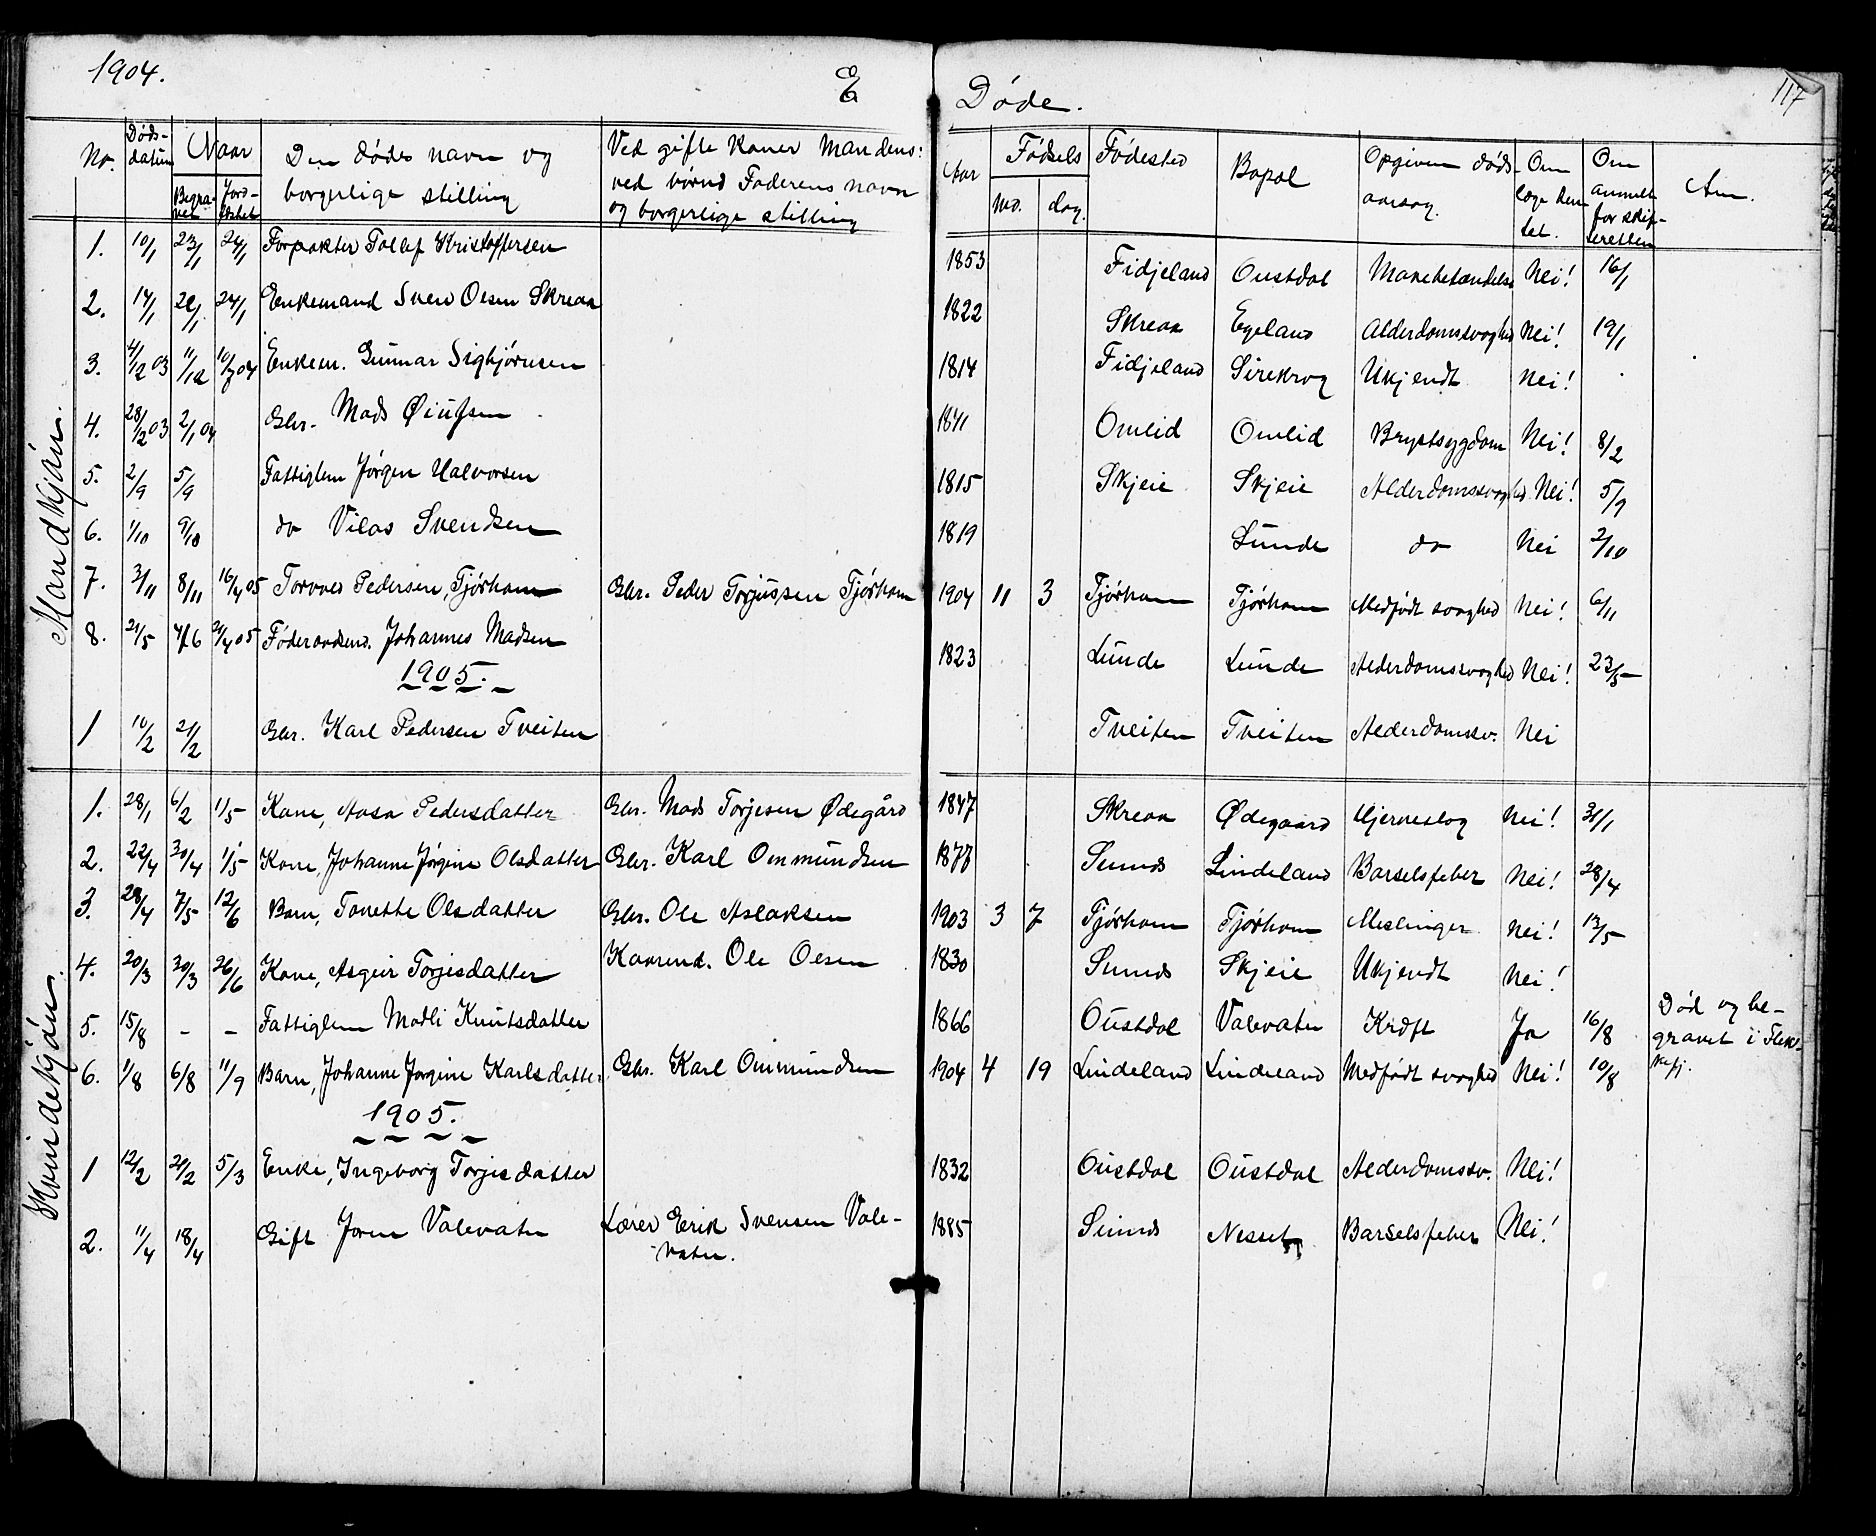 1904.
E
Døde.
117
No.
Døds-
datum
Naar
Begra-
vet
Jord-
fæstet
Den dødes navn og
borgerlige stilling
Ved gifte Koner Mandens:
ved børnd Faderens navn
og borgerlige stilling
Aar
Fødsels
md.
dag.
Fødested
Bopæl
Opgiven døds-
aarsag.
Om
læge hen-
tet.
Om
anmeldt
for skif-
teretten
An.
Mandkjøn.
1. 10/1 23/1 24/1 Forpakter Tollef Kristoffersen 1853 Fidjeland Oustdal Mavebetændelse Nei! 16/1
2. 14/1 22/1 24/1 Enkemand Sven Olsen Skreaa 1822 Skreaa Egeland Alderdomssvaghed Nei! 19/1
3. 4/12 03 11/12 10/7 04 Enkem. Gunnar Sigbjørnsen 1814 Fidjeland Sirekrog Ukjendt Nei!
4. 28/12 03 2/1 04 Gbr. Mads 1841 Omlid Omlid Brystsygdom Nei! 8/2
5. 2/9 5/9 Fattiglem Jørgen Halvorsen 1815 Skjeie Skjeie Alderdomssvaghed Nei! 5/9
6. 1/10 9/10 do Vilas Svendsen 1819 Lunde do Nei 2/10
7. 3/11 8/11 16/4 05 Torvald Pedersen, Tjørhom Gbr. Peder Torjussen Tjørhom 1904 11 3 Tjørhom Tjørhom Medfødt svaghed Nei! 6/11
8. 21/5 4/6 21/4 05 Føderaadsm. Johannes Madsen 1823 Lunde Lunde Alderdomssvaghed Nei! 23/5
1905.
1 10/2 21/2 Gbr. Karl Pedersen Tveiten Tveiten Tveiten Alderdomssv. Nei
Kvindekjøn.
1. 28/1 6/2 1/5 Kone, Aasa Pedersdatter Gbr. Mads Torjesen Ødegård 1847 Skreaa Ødegaard Hjerneslag Nei! 31/1
2. 22/4 30/4 1/5 Kone, Johanne Jørgine Olsdatter Gbr. Karl Ommundsen 1877 Sunds Lindeland Barselsfeber Nei! 28/4
3. 28/4 7/5 12/6 Barn, Tonette Olsdatter Gbr. Ole Aslaksen 1903 3 7 Tjørhom Tjørhom Meslinger Nei! 13/5
4. 20/3 30/3 26/6 Kone, Asgjer Torjisdatter Kaarmd. Ole Olsen 1830 Sunds Skjeie Ukjendt Nei!
5. 15/8 - - Fattiglem Malli Knutsdatter 1866 Oustdal Valevatn Kræft Ja 16/8 Død og be-
gravet i Flek-
kefj.
6. 1/8 6/8 11/9 Barn, Johanne Jørgine Karlsdatter Gbr. Karl Ommundsen 1904 4 19 Lindeland Lindeland Medfødt svaghed Nei! 10/8
1905.
1 12/2 21/2 5/3 Enke, Ingeborg Torjisdatter 1832 Oustdal Oustdal Alderdomssv. Nei!
2. 11/4 18/4 Gift Joren Valevatn Lærer Erik Svensen Vale-
vatn. 1885 Sunds Nesset Barselsfeber Nei!